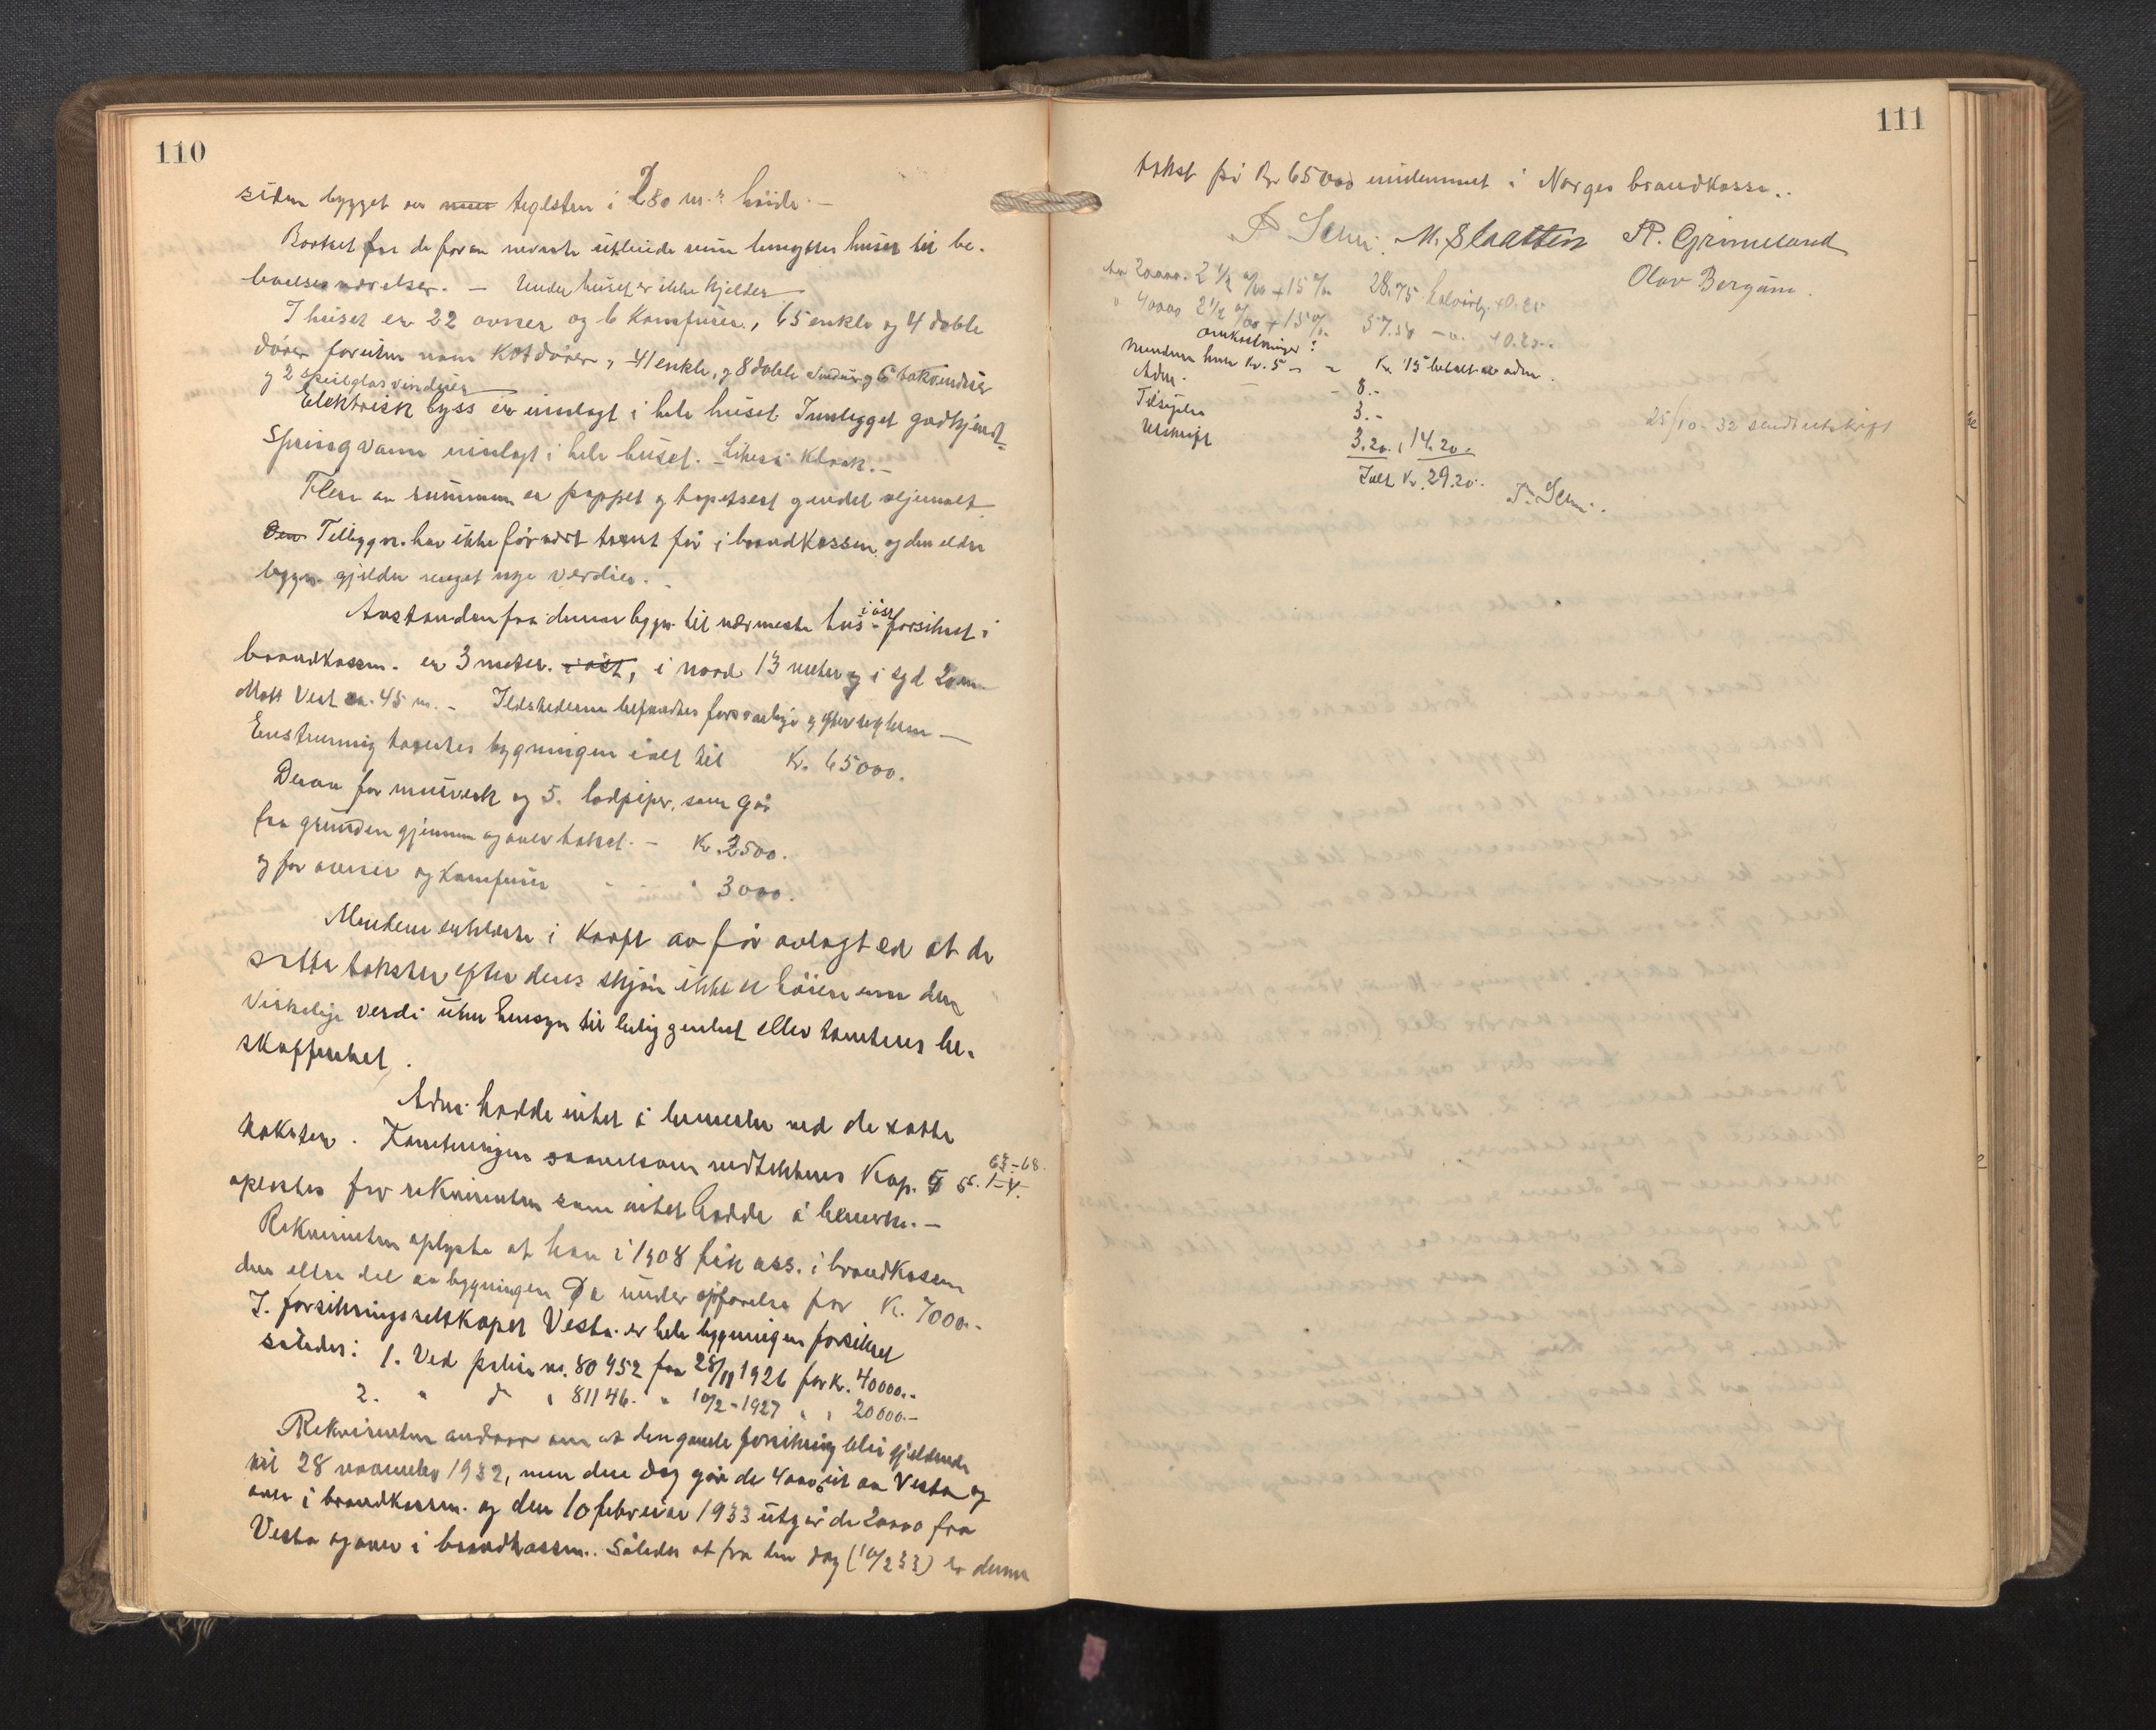 110
siden bygget av teglsten i 2.80 m.s høide. –
Bortset fra de foran nevnte utleide rum benyttes huset til be-
boelsesværelser. – Under huset er ikke kjelder
I huset er 22 ovner og 6 komfurer, 65 enkle og 4 doble
dører foruten noen kotdører, 41 enkle, og 8 doble vinduer og 6 takvinduer
og 2 speilglasvinduer
Elektrisk lyss er innlagt i hele huset. Innlegget godkjendt
Springvann innlagt i hele huset. – Likeså kloak. –
Flere av rummene er pappet og tapetsert og endel oljemalt
Tilbygn. har ikke før vært takst for i brandkassen, og den eldre
bygn. gjelder meget nye verdier.
Avstanden fra denne bygn. til nærmeste hus i øst forsikret i
brandkassen. er 3 meter. i øst, i nord 13 meter og i syd 20 m.
Mott Vest ca. 45 m. – Ildstederne befandtes forsvarlige og efter reglerne —
Enstemmig takseres bygningen i alt til Kr. 65000.
Derav for murverk og 5. lodpiper, som går
fra grunden gjennem og over taket. – Kr. 3500.
og for ovner og komfurer " " 3000.
Mendene erklærte i kraft av før avlagt ed at de
satte takster efter deres skjøn ikke er høiere enn den
virkelige verdi uten hensyn til beliggenhet eller tomtens be-
skaffenhet.
Adm. hadde intet å bemerke ved de satte
takster. Forretningen saavelsom vedtekternes Kap. 5 §§. 1–4. 63–68.
oplestes for rekvirenten som intet hadde å bemerke. –
Rekvirenten oplyste at han i 1908 fikk ass. i brandkassen
den eldre del av bygningen da under opførelse for Kr. 7000.-
I. forsikringsselskapet Vesta er hele bygningen forsikret
således: 1. Ved polise nr. 80452 fra 28/11 1926 for kr. 40000.-
2. " do " 81146. " 10/2-1927 " " 20000.–
Rekvirenten andrar om at den gamle forsikring blir gjeldende
til 28 november 1932, men den dag går de 40000 ut av Vesta og
over i brandkassen. og den 10 februar 1933 utgår de 20000 fra
Vesta og over i brandkassen.. Således at fra den dag (10/2 33) er denne
111
takst på Kr 65000 innlemmet i Norges brandkasse..
P. Schei. M. Slaatten R. Grimeland
Olav Bergum.
Av 20000. 2 1/2 o/oo + 15 o/o 28.75 halvårlig + 0.25
" 40000 2 1/2 o/oo + 15 o/o 57.50 – " – + 0.25..
omkostninger:
Mendene hver Kr. 5 – = Kr. 15 betalt av adm.
Adm. – 8.–
Tilsigelse 3.–
Utskrift 3.20., 14.20.
Ialt Kr. 29.20.
P. Schei.
25/10-32 sendt utskrift